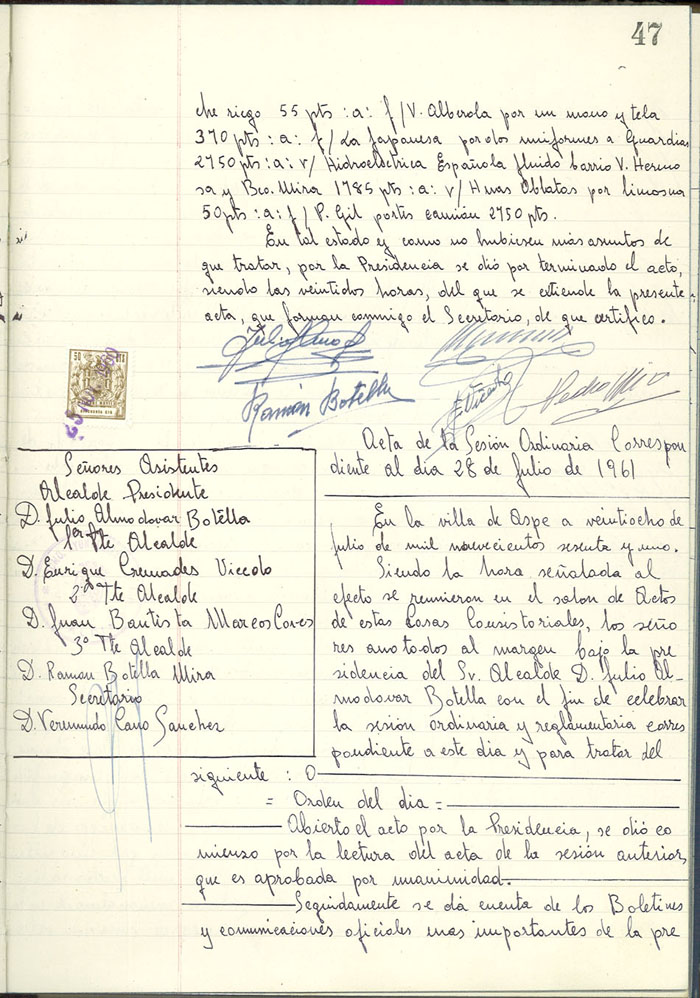 47
che riego 55 pts :a: f/ V. Alberola por un mono y tela
370 pts :a: f/ La Japonesa por dos uniformes a Guardias
2750 pts :a: r/ Hidroeléctrica Española fluido barrio V. Hermo
sa y Bco. Mira 1785 pts :a: r/ Hnas Oblatas por limosna
50 pts :a: f/ P. Gil portes camión 2750 pts.
En tal estado y como no hubiesen más asuntos de
que tratar, por la Presidencia se dió por terminado el acto,
siendo las veintidos horas, del que se extiende la presente
acta, que forman conmigo el Secretario, de que certifico.
Ramón Botella
Pedro Mira
50 PTA
Acta de la Sesión Ordinaria Correspon
diente al dia 28 de Julio de 1961
Señores Asistentes
Alcalde Presidente
D. Julio Almodovar Botella
1er Tte Alcalde
D. Enrique Cremades Vicedo
2º Tte Alcalde
D. Juan Bautista Marcos Cores
3º Tte Alcalde
D. Ramon Botella Mira
Secretario
D. Veremundo Cano Sanchez
En la villa de Aspe a veintiocho de
julio de mil novecientos sesenta y uno.
Siendo la hora señalada al
efecto se reunieron en el salon de Actos
de estas Casas Consistoriales, los seño
res anotados al margen bajo la pre
sidencia del Sr. Alcalde D. Julio Al-
modovar Botella con el fin de celebrar
la sesión ordinaria y reglamentaria corres
pondiente a este dia y para tratar del
siguiente : O
= Orden del dia =
Abierto el acto por la Presidencia, se dió co
mienzo por la lectura del acta de la sesión anterior,
que es aprobada por unanimidad.
Seguidamente se dá cuenta de los Boletines
y comunicaciones oficiales mas importantes de la pre